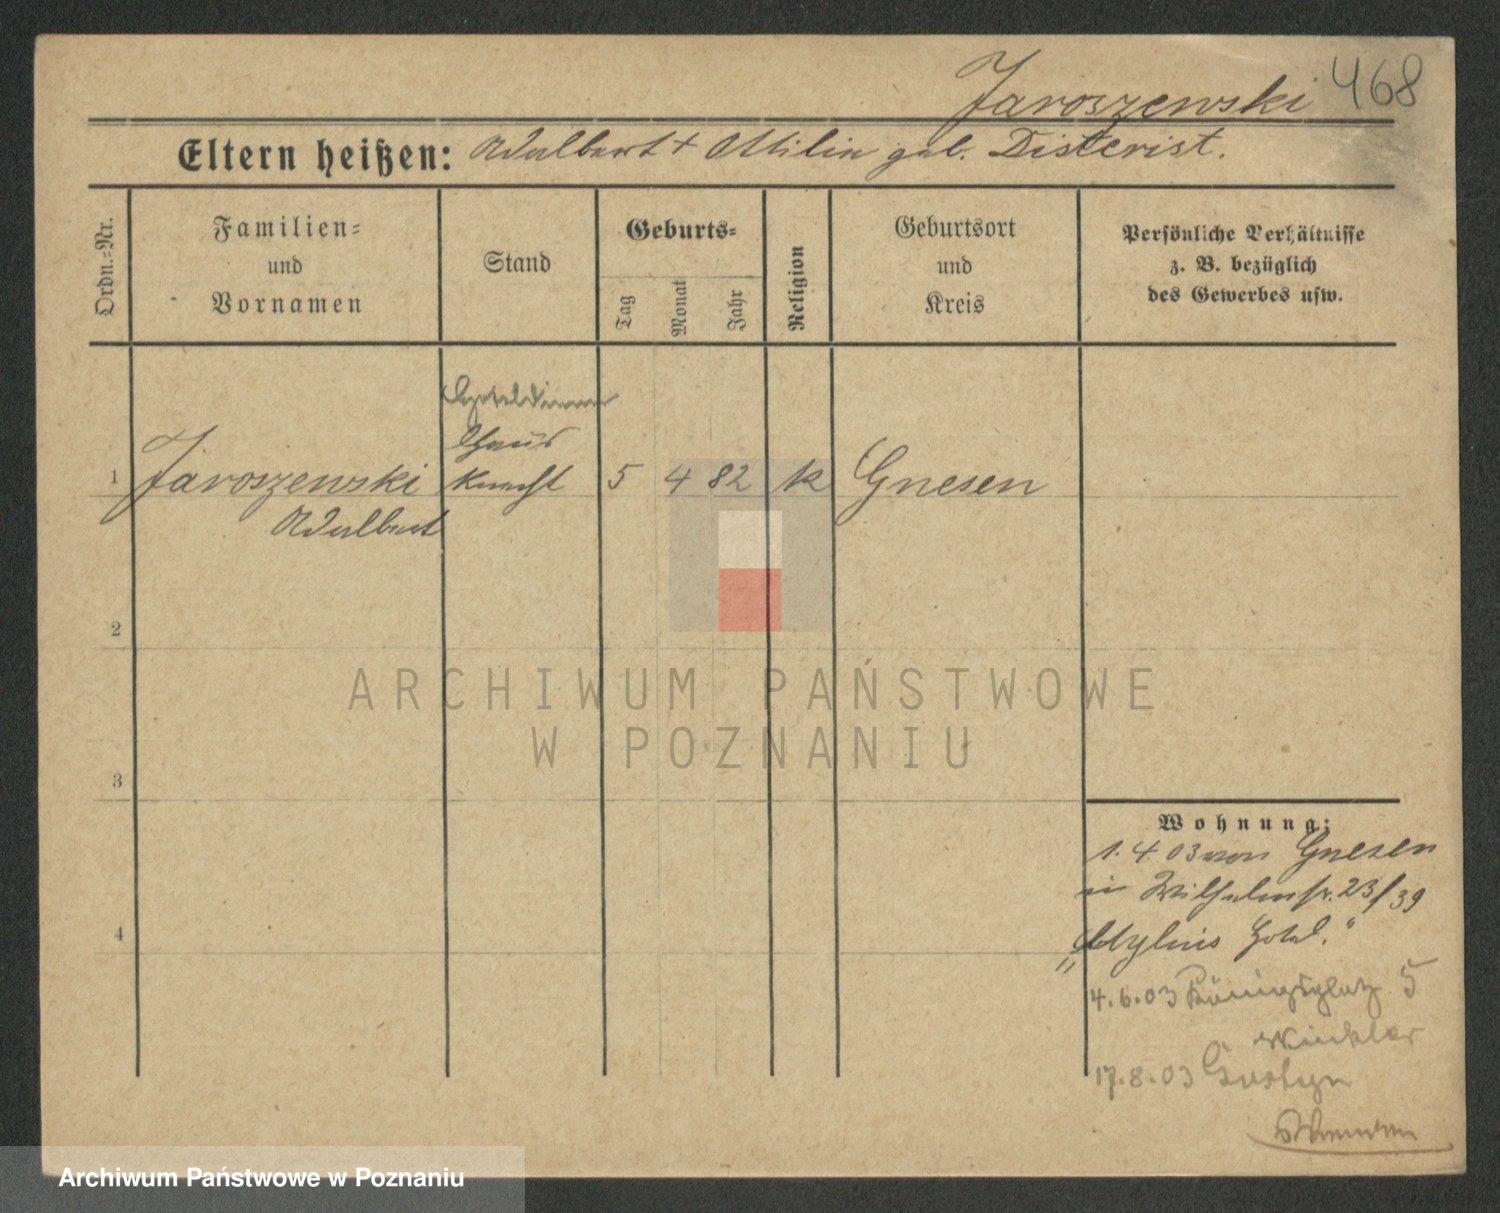 Jaroszewski 468
Eltern heißen: Adalbert + Ottilie geb. Disterist.
Ordn.=Nr.
Familien=
und
Vornamen
Stand
Geburts=
Tag
Monat
Jahr
Religion
Geburtsort
und
Kreis
Persönliche Verhältnisse
z. B. bezüglich
des Gewerbes usw.
Hoteldiener
Haus
1 Jaroszewski Knecht 5 4 82 k Gnesen
Adalbert
2
ARCHIWUM PAŃSTWOWE
W POZNANIU
3
Wohnung:
1. 4 03 von Gnesen
in Wilhelmstr. 23/39
Hotel."
4
4.6.03 Königsplatz 5
Winkler
17.8.03 Gostyn
Archiwum Państwowe w Poznaniu